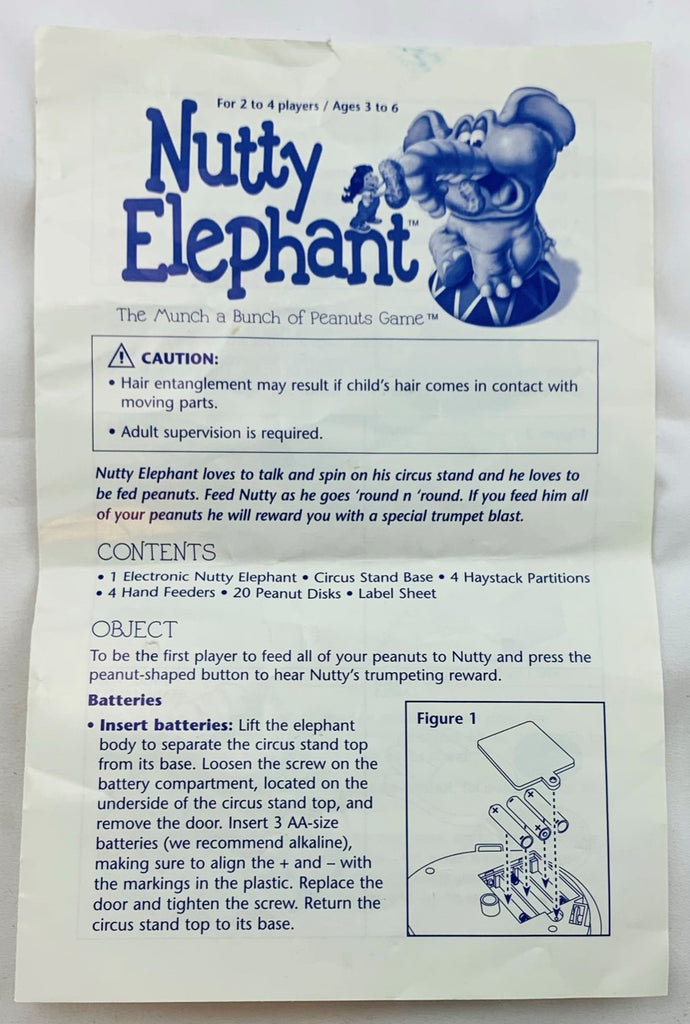 For 2 to 4 players / Ages 3 to 6
Nutty
Elephant™
The Munch a Bunch of Peanuts Game™
CAUTION:
• Hair entanglement may result if child's hair comes in contact with
moving parts.
• Adult supervision is required.
Nutty Elephant loves to talk and spin on his circus stand and he loves to
be fed peanuts. Feed Nutty as he goes 'round n 'round. If you feed him all
of your peanuts he will reward you with a special trumpet blast.
CONTENTS
• 1 Electronic Nutty Elephant • Circus Stand Base • 4 Haystack Partitions
• 4 Hand Feeders • 20 Peanut Disks • Label Sheet
OBJECT
To be the first player to feed all of your peanuts to Nutty and press the
peanut-shaped button to hear Nutty's trumpeting reward.
Batteries
• Insert batteries: Lift the elephant
body to separate the circus stand top
from its base. Loosen the screw on the
battery compartment, located on the
underside of the circus stand top, and
remove the door. Insert 3 AA-size
batteries (we recommend alkaline),
making sure to align the + and – with
the markings in the plastic. Replace the
door and tighten the screw. Return the
circus stand top to its base.
Figure 1